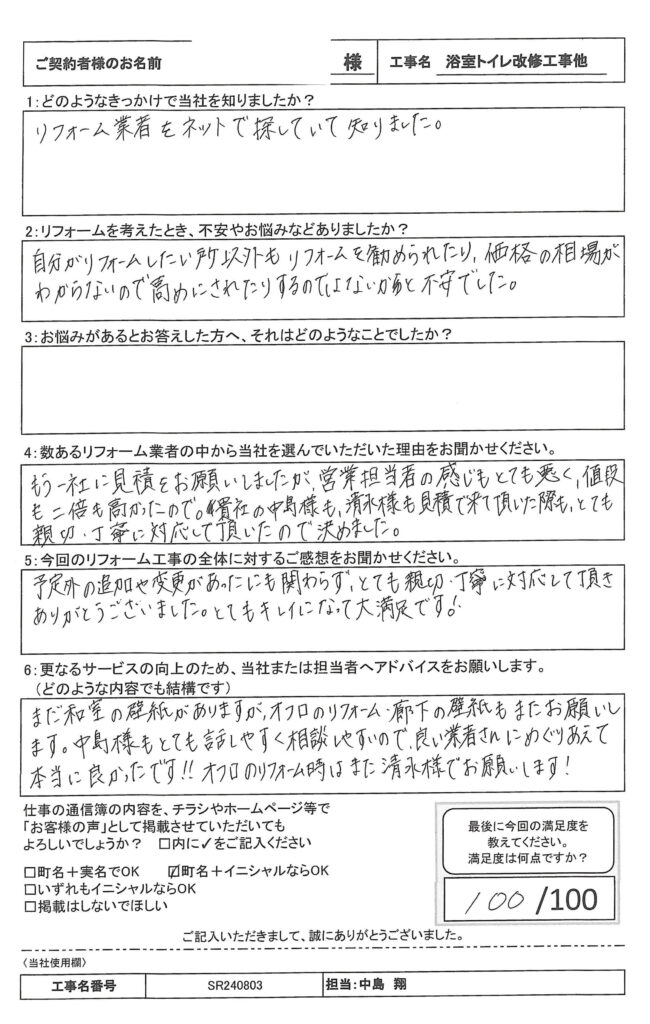 ご契約者様のお名前 様 工事名 浴室トイレ改修工事他
1:どのようなきっかけで当社を知りましたか?
リフォーム業者をネットで探していて知りました。
2:リフォームを考えたとき、不安やお悩みなどありましたか?
自分がリフォームしたい所以外もリフォームを勧められたり、価格の相場が
わからないので高めにされたりするのではないかなと不安でした。
3:お悩みがあるとお答えした方へ、それはどのようなことでしたか?
4:数あるリフォーム業者の中から当社を選んでいただいた理由をお聞かせください。
もう一社に見積をお願いしましたが、営業担当者の感じもとても悪く、値段
も二倍も高かったので。貴社の中島様も、清水様も見積で来て頂いた際も、とても
親切・丁寧に対応して頂いたので決めました。
5:今回のリフォーム工事の全体に対するご感想をお聞かせください。
予定外の追加や変更があったにも関わらず、とても親切・丁寧に対応して頂き
ありがとうございました。とてもキレイになって大満足です!
6:更なるサービスの向上のため、当社または担当者へアドバイスをお願いします。
(どのような内容でも結構です)
まだ和室の壁紙がありますが、オフロのリフォーム・廊下の壁紙もまたお願いし
ます。中島様もとても話しやすく相談しやすいので、良い業者さんにめぐりあえて
本当に良かったです!! オフロのリフォーム時はまた清水様でお願いします!
仕事の通信簿の内容を、チラシやホームページ等で
「お客様の声」として掲載させていただいても
よろしいでしょうか? □内に✓をご記入ください
□町名+実名でOK ☑町名+イニシャルならOK
□いずれもイニシャルならOK
□掲載はしないでほしい
最後に今回の満足度を
教えてください。
満足度は何点ですか?
100/100
ご記入いただきまして、誠にありがとうございました。
〈当社使用欄〉
工事名番号 SR240803 担当:中島 翔